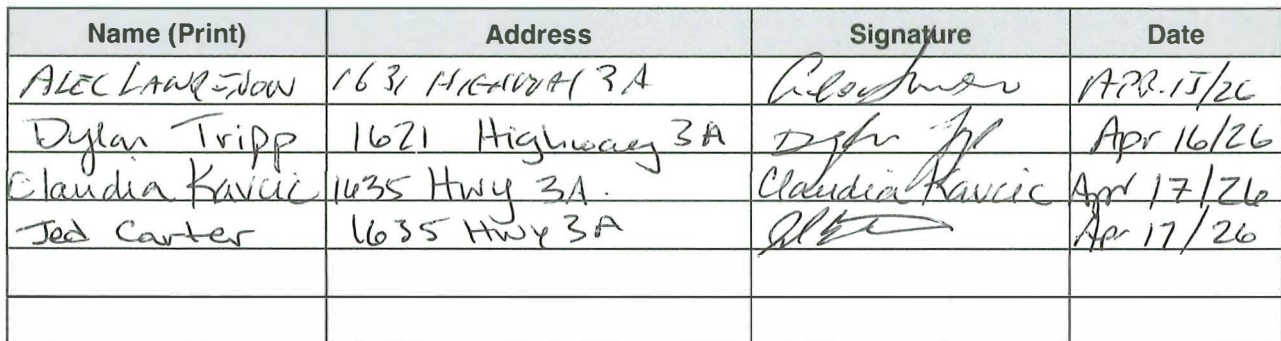 Name (Print) Address Signature Date
ALEC 1631 HIGHWAY 3A APR. 15/26
Dylan Tripp 1621 Highway 3A Apr 16/26
Claudia Kavcic 1635 Hwy 3A. Claudia Kavcic Apr 17/26
Jed Carter 1635 Hwy 3A Apr 17/26